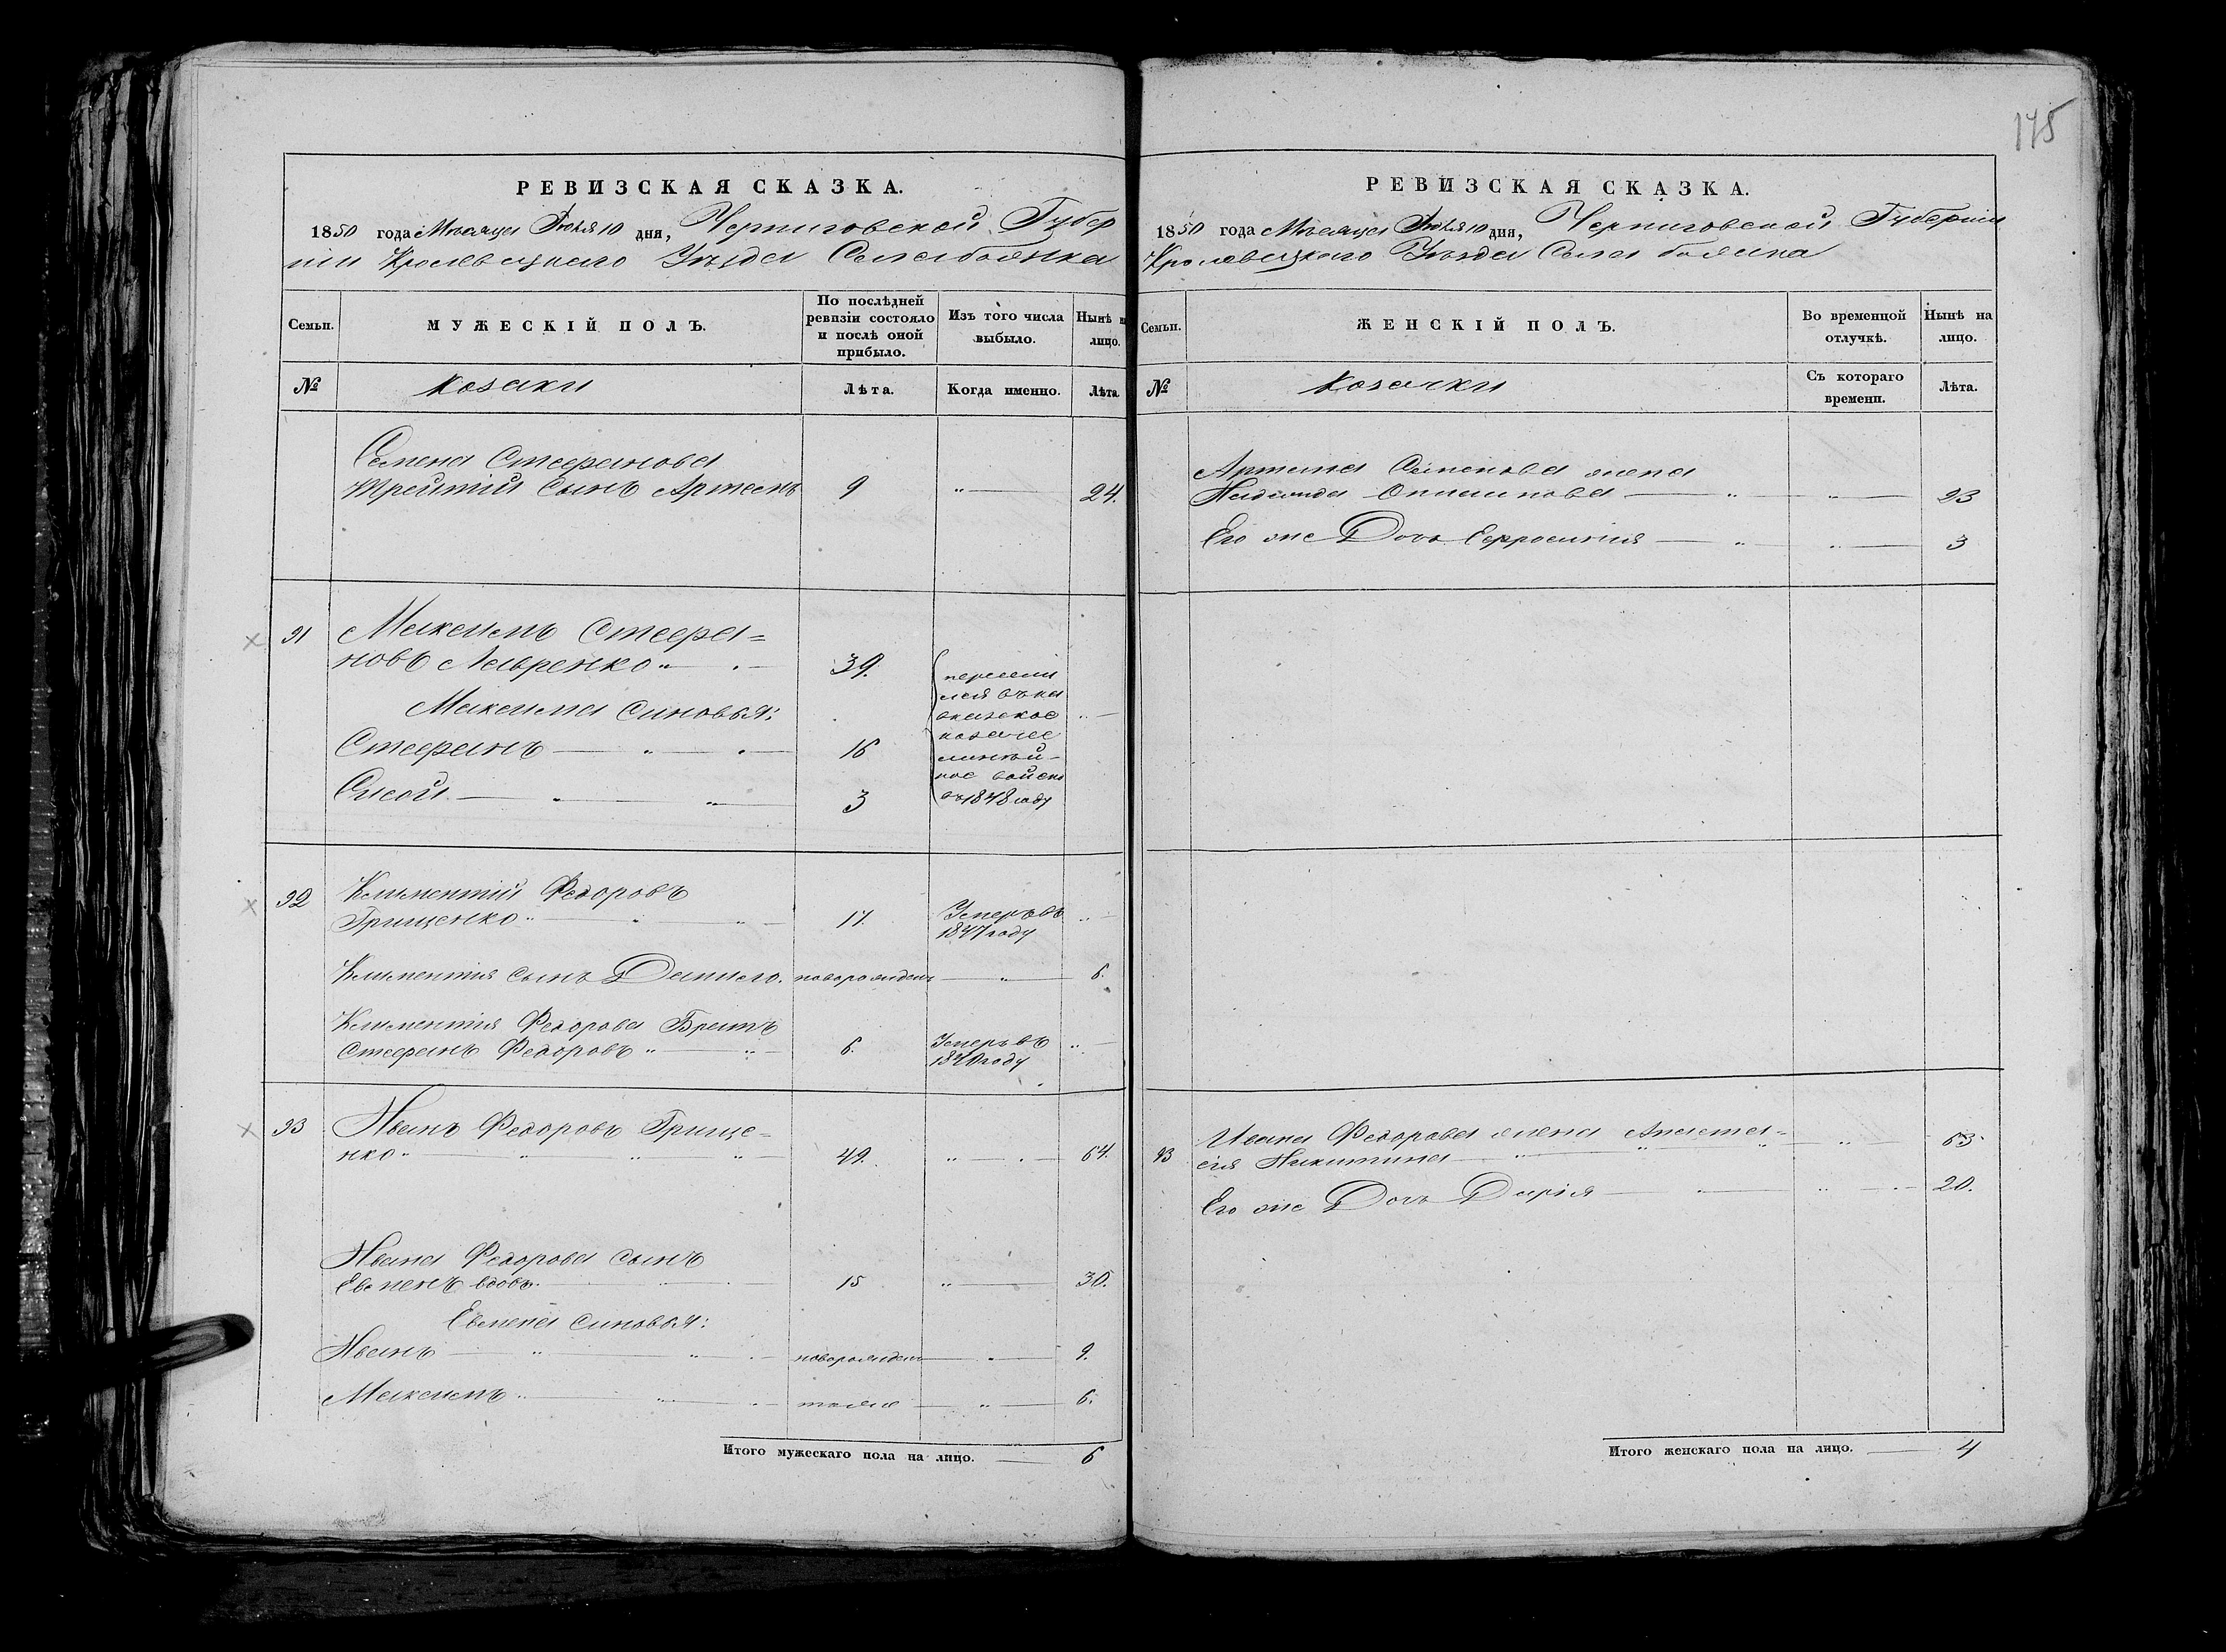 175
РЕВИЗСКАЯ СКАЗКА.
1850 года Месяца Июля 10 дня, Черниговской Губер
нии Кролевецкаго Уѣзда Села
Семьи. МУЖЕСКІЙ ПОЛЪ. По послѣдней ревизіи состояло и послѣ оной прибыло. Изъ того числа выбыло. Нынѣ на лицо.
№ Козаки Лѣта. Когда именно. Лѣта
Семена Стефанова
третий сынъ Артемъ 9 " 24.
91 Максимъ Стефа=
новъ Лавренко 39.
Максима синовья:
Стефанъ 16
Сисой 3
пересели
лся въ ка
вказское
козачее
линѣй-
ное войско
въ 1848 году
92 Климентий Федоровъ
Грищенко 17. Умеръ въ
1847 году
Климентия сынъ Данило. новорожден 6.
Климентия Федорова Братъ
Стефанъ Федоровъ 6. Умеръ въ
1840 году
93 Иванъ Федоровъ Грище=
нко 49. " 64.
Ивана Федорова сынъ
Евменъ вдовъ 15 " 30.
Евмена синовья:
Иванъ новорожден 9.
Максимъ тоже 6.
Итого мужескаго пола на лицо. 6
РЕВИЗСКАЯ СКАЗКА.
1850 года Месяца Июля 10 дня, Черниговской Губернии
Кролевецкаго Уѣзда Села
Семьи. ЖЕНСКІЙ ПОЛЪ. Во временной отлучкѣ. Нынѣ на лицо.
№ Козачки Съ котораго времени. Лѣта.
Артема Семенова жена
23
Его же Дочь Ефросиния 3
93 Ивана Федорова жена Анаста=
сия Никитина 63
Его же Дочь Дария 20.
Итого женскаго пола на лицо. 4